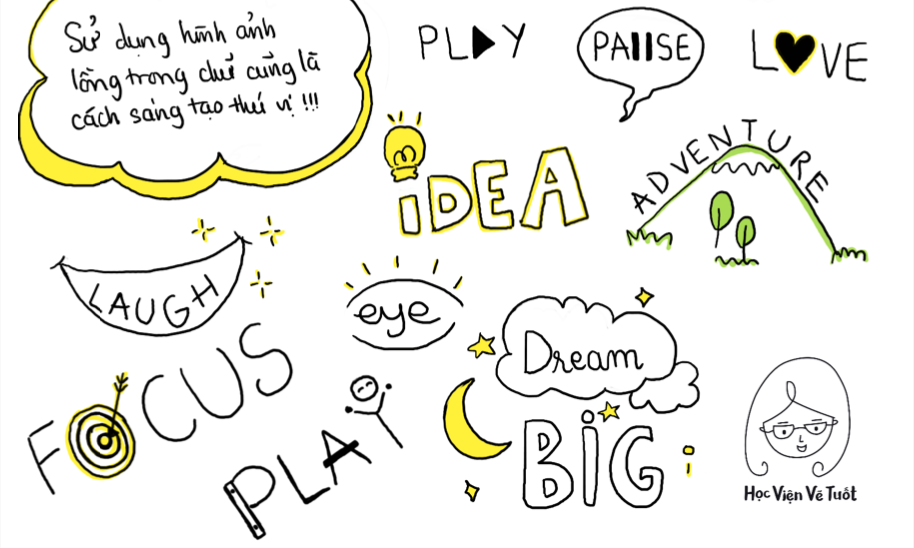 Sử dụng hình ảnh
lồng trong chữ cũng là
cách sáng tạo thú vị !!!
PLAY
PAUSE
LOVE
iDEA
ADVENTURE
LAUGH
eye
FOCUS
PLAY
Dream
BiG
Học Viện Vẽ Tuốt